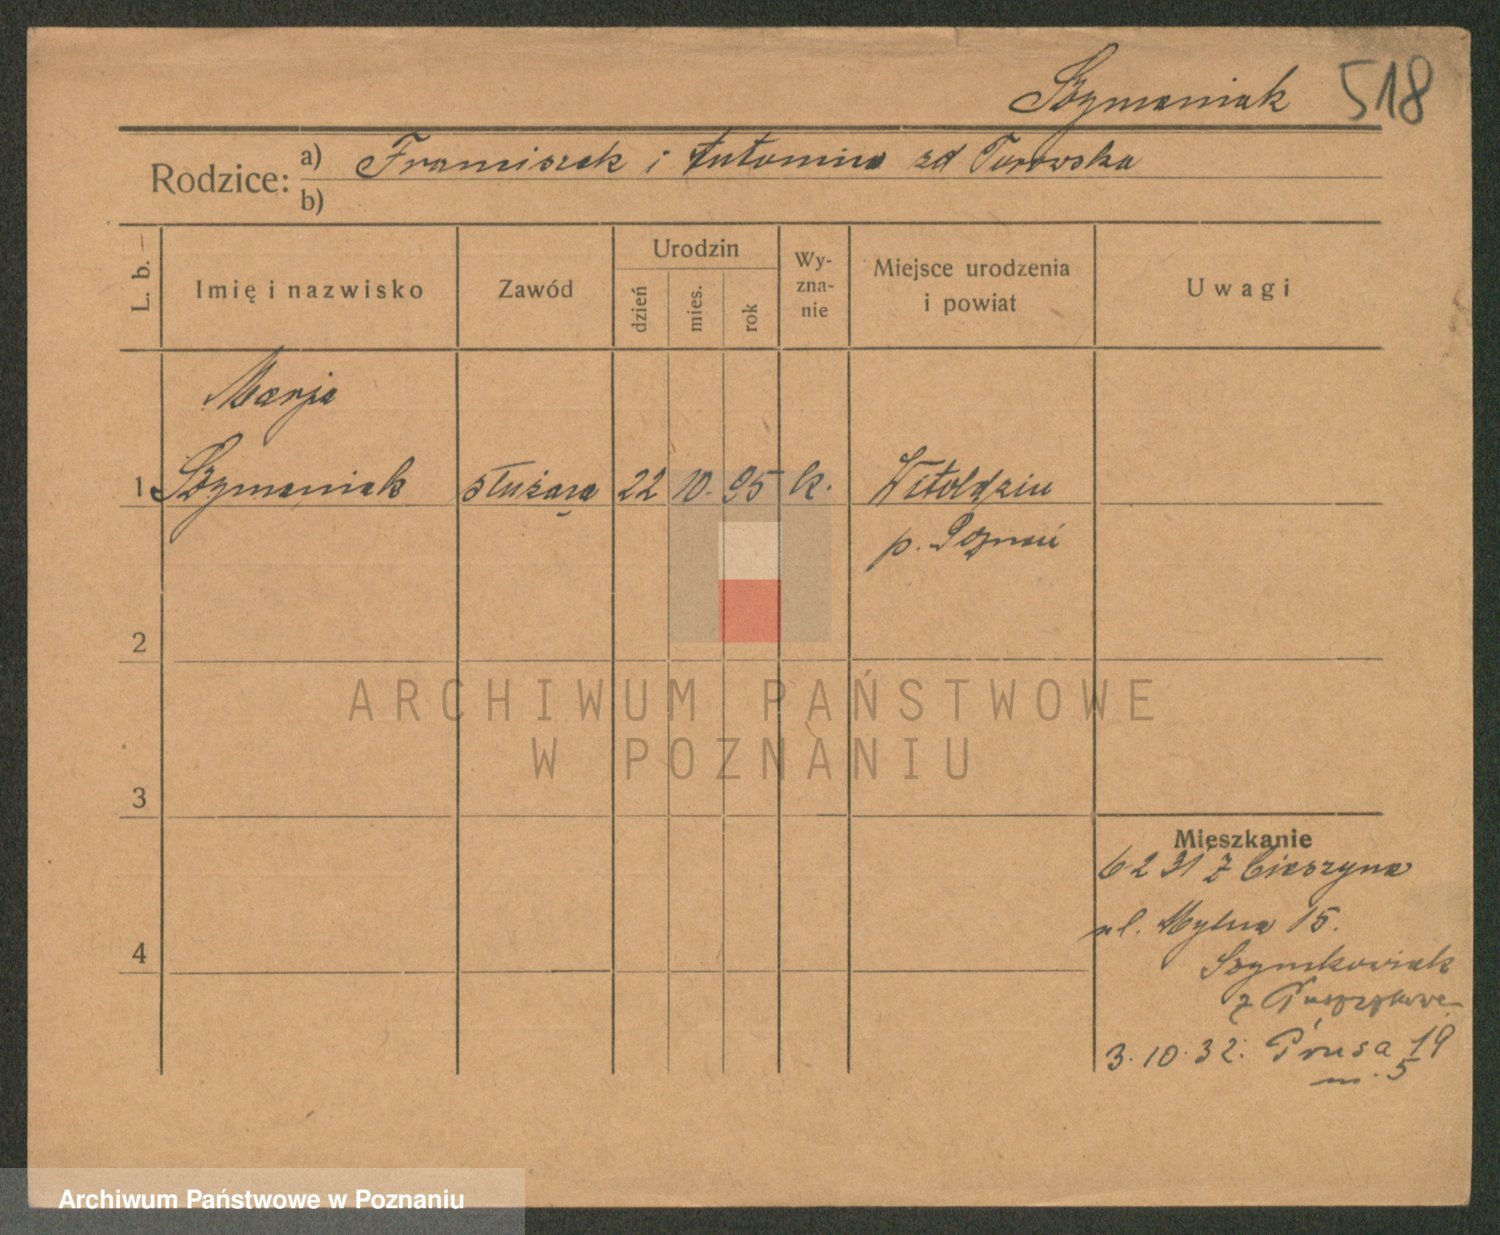 Szymaniak 518
Rodzice: a) Franciszek i Antonina zd Turowska
b)
L. b. Imię i nazwisko Zawód Urodzin dzień mies. rok Wy-zna-nie Miejsce urodzenia i powiat Uwagi
Marja
1 Szymaniak służąca 22 10. 95 k. Witoldzin
p. Poznań
2
ARCHIWUM PAŃSTWOWE
W POZNANIU
3
Mieszkanie
6 2 31 z Cieszyna
ul. Mylna 15.
4
Szymkowiak
z
3.10.32. Prusa 19
m. 5
Archiwum Państwowe w Poznaniu